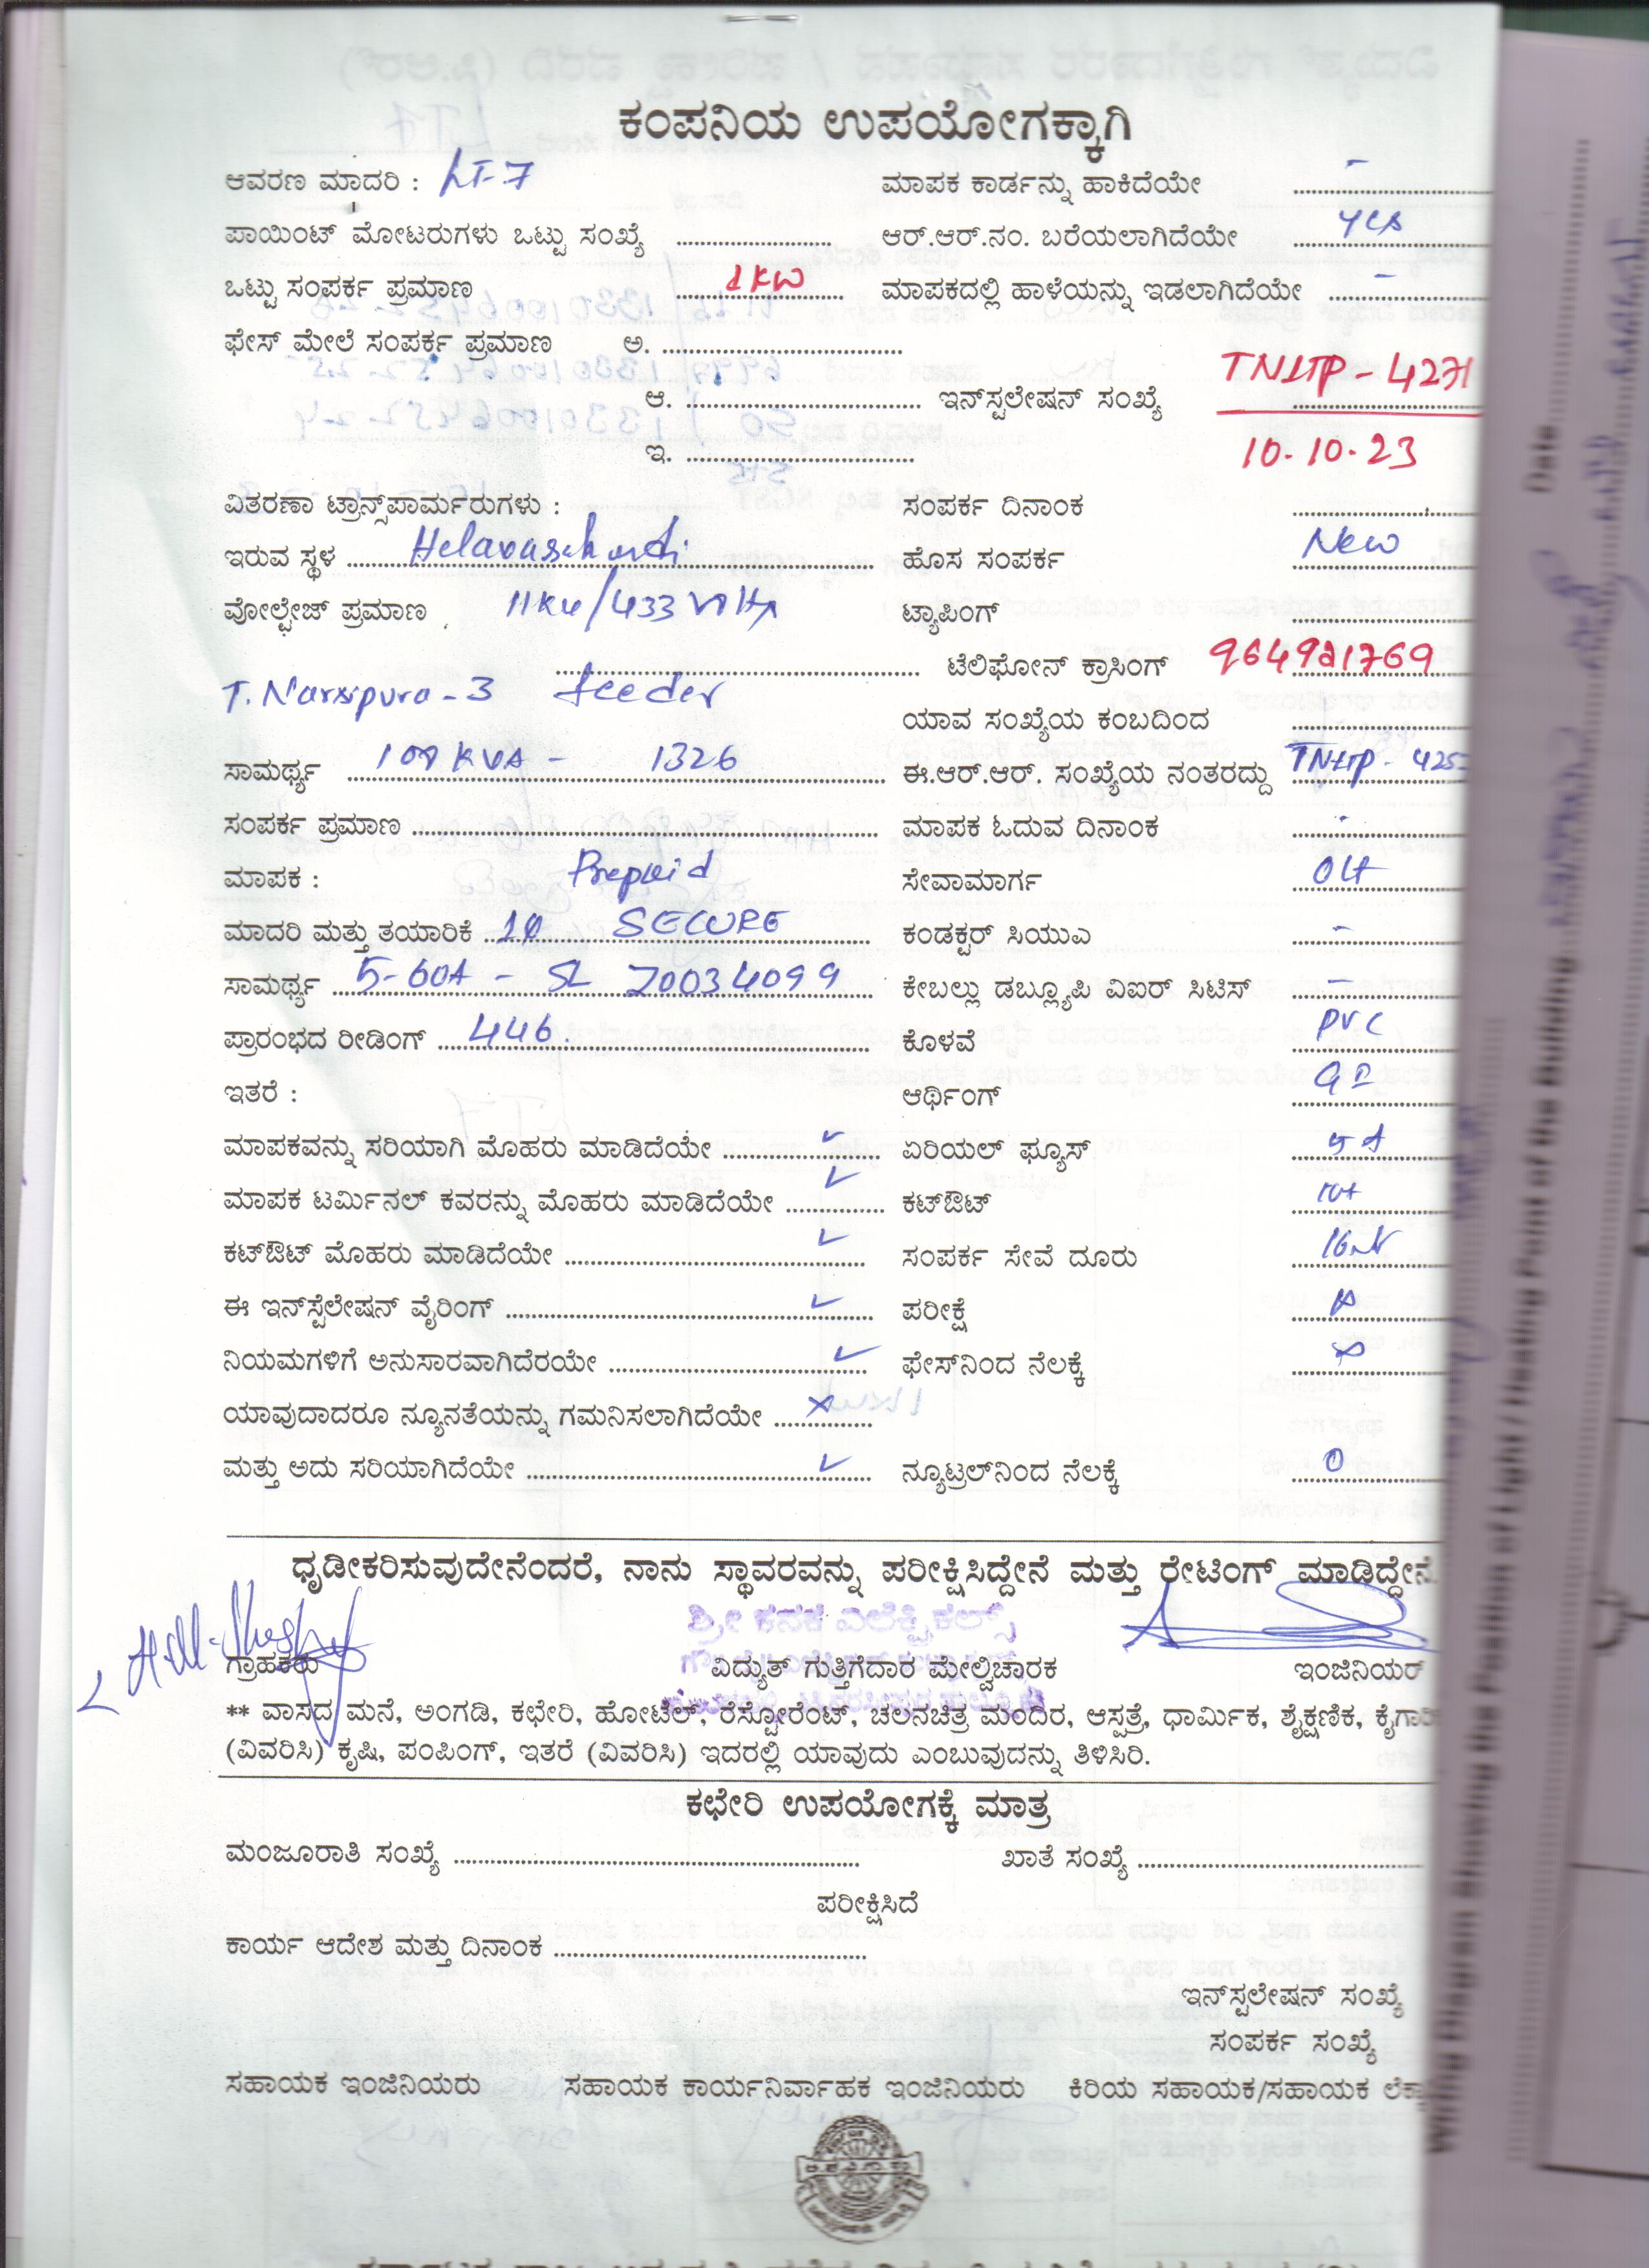 ಕಂಪನಿಯ ಉಪಯೋಗಕ್ಕಾಗಿ
ಆವರಣ ಮಾದರಿ : LT-7 ಮಾಪಕ ಕಾರ್ಡನ್ನು ಹಾಕಿದೆಯೇ -
ಪಾಯಿಂಟ್ ಮೋಟರುಗಳು ಒಟ್ಟು ಸಂಖ್ಯೆ ಆರ್.ಆರ್.ನಂ. ಬರೆಯಲಾಗಿದೆಯೇ yes
ಒಟ್ಟು ಸಂಪರ್ಕ ಪ್ರಮಾಣ 1KW ಮಾಪಕದಲ್ಲಿ ಹಾಳೆಯನ್ನು ಇಡಲಾಗಿದೆಯೇ -
ಫೇಸ್ ಮೇಲೆ ಸಂಪರ್ಕ ಪ್ರಮಾಣ ಅ.
ಆ. ಇನ್‌ಸ್ಟಲೇಷನ್ ಸಂಖ್ಯೆ TNLTP - 4271
ಇ. 10-10-23
ವಿತರಣಾ ಟ್ರಾನ್ಸ್‌ಪಾರ್ಮರುಗಳು : ಸಂಪರ್ಕ ದಿನಾಂಕ
ಇರುವ ಸ್ಥಳ ಹೊಸ ಸಂಪರ್ಕ New
ವೋಲ್ಟೇಜ್ ಪ್ರಮಾಣ 11KV/433 Volts ಟ್ಯಾಪಿಂಗ್
ಟೆಲಿಫೋನ್ ಕ್ರಾಸಿಂಗ್
T. Narsipura - 3 feeder ಯಾವ ಸಂಖ್ಯೆಯ ಕಂಬದಿಂದ
ಸಾಮರ್ಥ್ಯ 100 KVA - 1326 ಈ.ಆರ್.ಆರ್. ಸಂಖ್ಯೆಯ ನಂತರದ್ದು TNLTP - 425
ಸಂಪರ್ಕ ಪ್ರಮಾಣ ಮಾಪಕ ಓದುವ ದಿನಾಂಕ -
ಮಾಪಕ : Prepaid ಸೇವಾಮಾರ್ಗ OH
ಮಾದರಿ ಮತ್ತು ತಯಾರಿಕೆ 1Φ SECURE ಕಂಡಕ್ಟರ್ ಸಿಯುಎ -
ಸಾಮರ್ಥ್ಯ 5-60A - SL 20034099 ಕೇಬಲ್ಲು ಡಬ್ಲ್ಯೂಪಿ ವಿಐರ್ ಸಿಟಿಸ್ -
ಪ್ರಾರಂಭದ ರೀಡಿಂಗ್ 446. ಕೊಳವೆ PVC
ಇತರೆ : ಆರ್ಥಿಂಗ್
ಮಾಪಕವನ್ನು ಸರಿಯಾಗಿ ಮೊಹರು ಮಾಡಿದೆಯೇ ✓ ಏರಿಯಲ್ ಫ್ಯೂಸ್ 5A
ಮಾಪಕ ಟರ್ಮಿನಲ್ ಕವರನ್ನು ಮೊಹರು ಮಾಡಿದೆಯೇ ✓ ಕಟ್‌ಔಟ್ 10A
ಕಟ್‌ಔಟ್ ಮೊಹರು ಮಾಡಿದೆಯೇ ✓ ಸಂಪರ್ಕ ಸೇವೆ ದೂರು
ಈ ಇನ್‌ಸ್ಟೆಲೇಷನ್ ವೈರಿಂಗ್ ✓ ಪರೀಕ್ಷೆ
ನಿಯಮಗಳಿಗೆ ಅನುಸಾರವಾಗಿದೆರಯೇ ✓ ಫೇಸ್‌ನಿಂದ ನೆಲಕ್ಕೆ ∞
ಯಾವುದಾದರೂ ನ್ಯೂನತೆಯನ್ನು ಗಮನಿಸಲಾಗಿದೆಯೇ ×
ಮತ್ತು ಅದು ಸರಿಯಾಗಿದೆಯೇ ✓ ನ್ಯೂಟ್ರಲ್‌ನಿಂದ ನೆಲಕ್ಕೆ 0
ಧೃಡೀಕರಿಸುವುದೇನೆಂದರೆ, ನಾನು ಸ್ಥಾವರವನ್ನು ಪರೀಕ್ಷಿಸಿದ್ದೇನೆ ಮತ್ತು ರೇಟಿಂಗ್ ಮಾಡಿದ್ದೇನೆ.
ಶ್ರೀ ಕನಕ ಎಲೆಕ್ಟ್ರಿಕಲ್ಸ್
ಗ್ರಾಹಕರು ವಿದ್ಯುತ್ ಗುತ್ತಿಗೆದಾರ ಮೇಲ್ವಿಚಾರಕ ಇಂಜಿನಿಯರ್
** ವಾಸದ ಮನೆ, ಅಂಗಡಿ, ಕಛೇರಿ, ಹೋಟೆಲ್, ರೆಸ್ಟೋರೆಂಟ್, ಚಲನಚಿತ್ರ ಮಂದಿರ, ಆಸ್ಪತ್ರೆ, ಧಾರ್ಮಿಕ, ಶೈಕ್ಷಣಿಕ,
(ವಿವರಿಸಿ) ಕೃಷಿ, ಪಂಪಿಂಗ್, ಇತರೆ (ವಿವರಿಸಿ) ಇದರಲ್ಲಿ ಯಾವುದು ಎಂಬುವುದನ್ನು ತಿಳಿಸಿರಿ.
ಕಛೇರಿ ಉಪಯೋಗಕ್ಕೆ ಮಾತ್ರ
ಮಂಜೂರಾತಿ ಸಂಖ್ಯೆ ಖಾತೆ ಸಂಖ್ಯೆ
ಪರೀಕ್ಷಿಸಿದೆ
ಕಾರ್ಯ ಆದೇಶ ಮತ್ತು ದಿನಾಂಕ
ಇನ್‌ಸ್ಟಲೇಷನ್ ಸಂಖ್ಯೆ
ಸಂಪರ್ಕ ಸಂಖ್ಯೆ
ಸಹಾಯಕ ಇಂಜಿನಿಯರು ಸಹಾಯಕ ಕಾರ್ಯನಿರ್ವಾಹಕ ಇಂಜಿನಿಯರು ಕಿರಿಯ ಸಹಾಯಕ/ಸಹಾಯಕ
Date
Wiring Diagram Showing the Position of Light / Heating Point of the Building